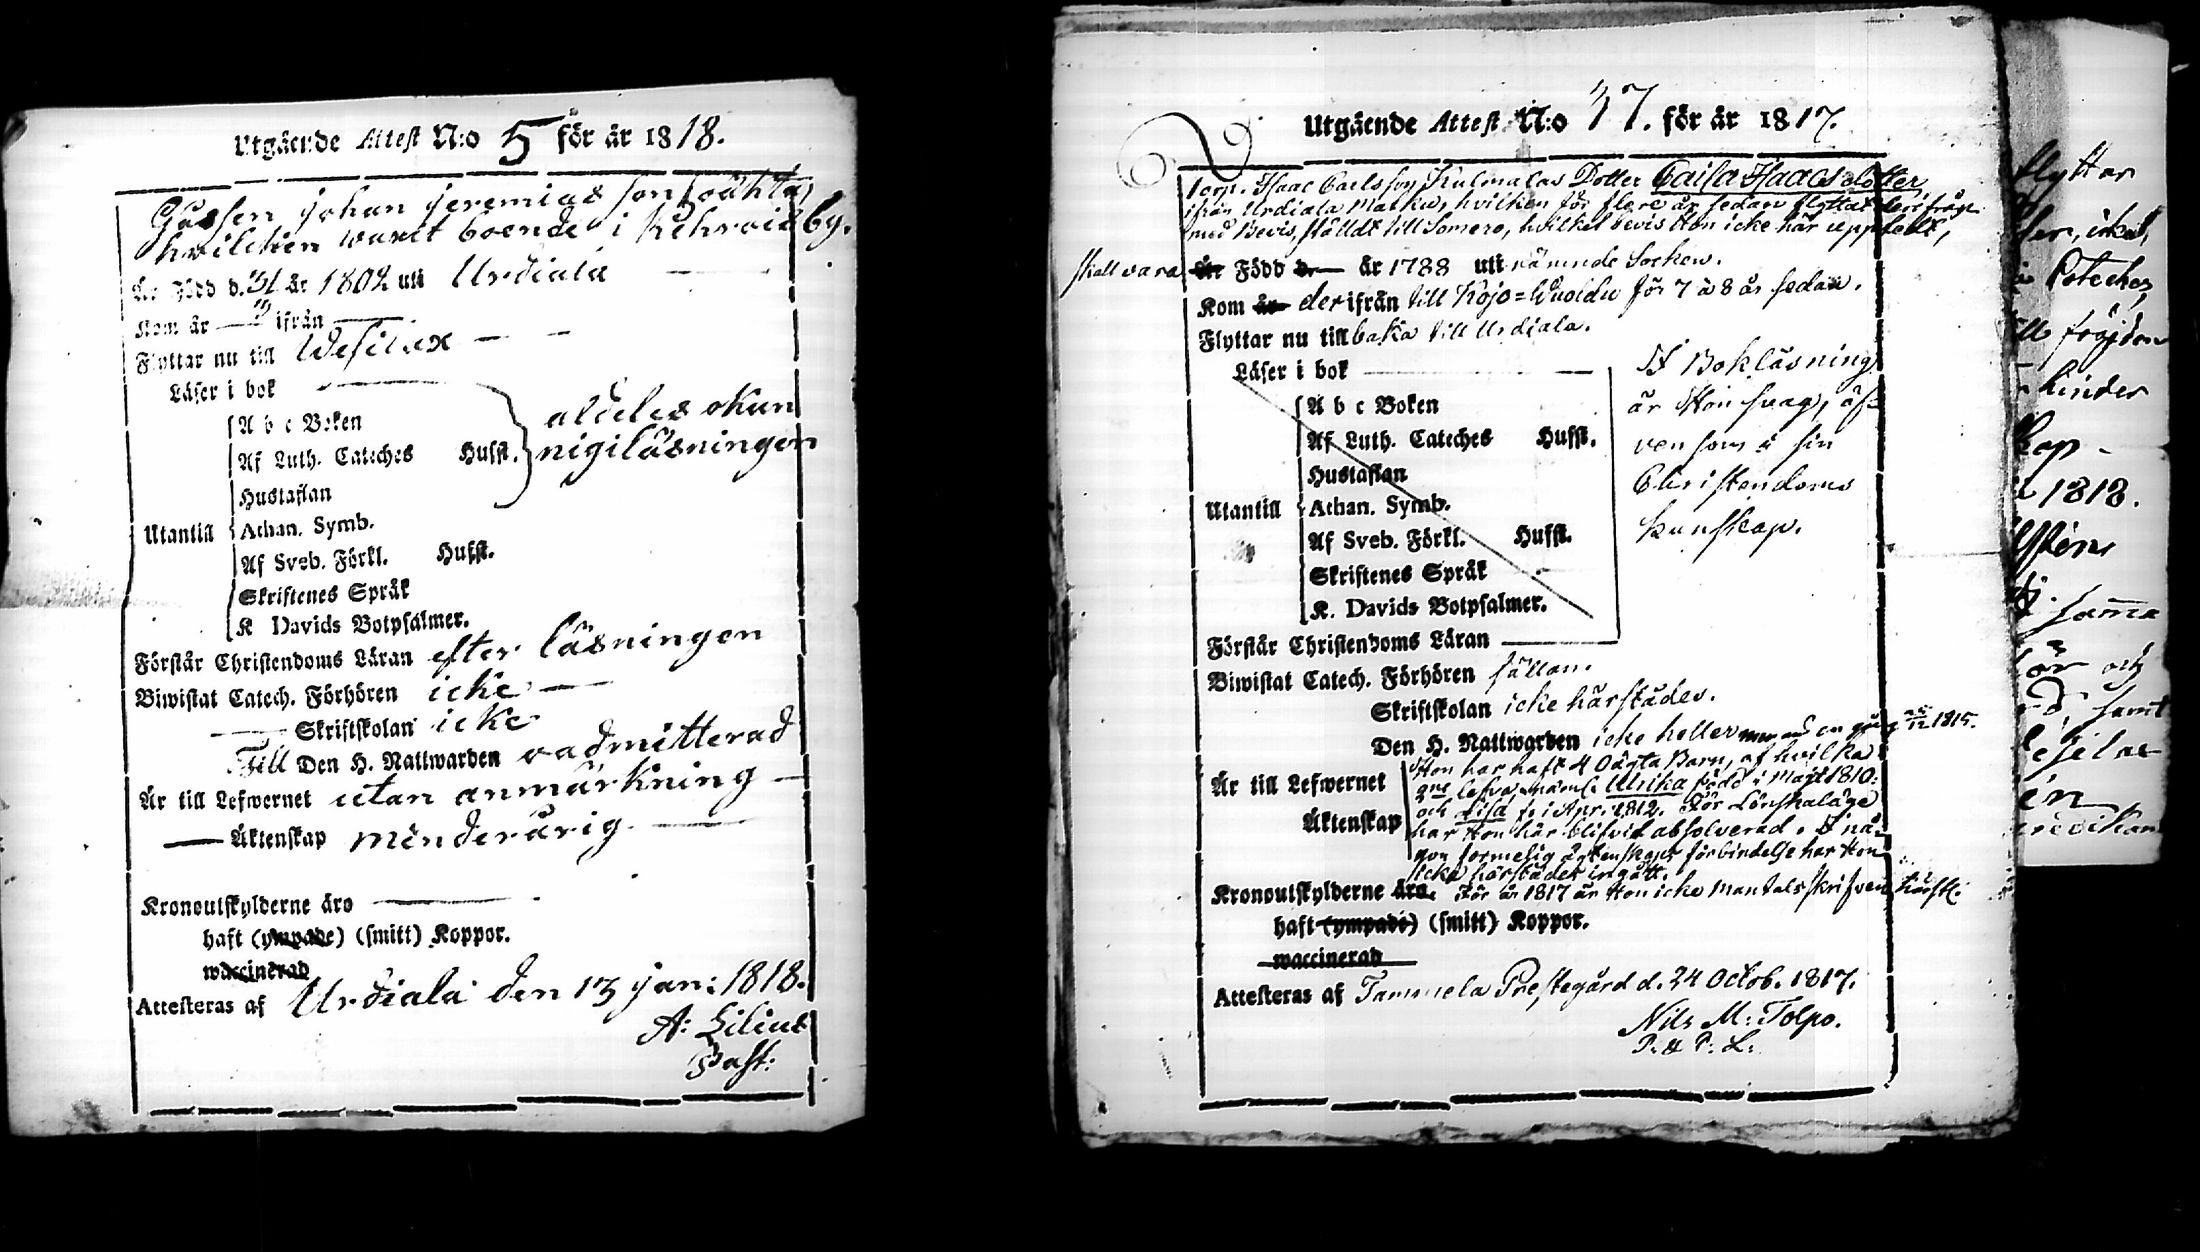 Utgående Attest N:o 5 för år 1818.
Gossen johan jeremias son oächta,
hvilcken warit boende i Kehrois by.
Är Född d. 31 år 1802 uti Urdiala
Kom år — ifrån —
Flyttar nu till Wesilax
Läser i bok
A b c Boken
Af Luth. Cateches Hufst.
Hustaflan
Utantill
Athan. Symb.
Af Sveb. Förkl. Hufst.
Skriftenes Språk
K Davids Botpsalmer.
aldeles okun
nig i läsningen
Förstår Christendoms Läran efter läsningen
Biwistat Catech. Förhören icke
Skriftskolan icke
Till Den H. Nattwarden oadmitterad
Är till Lefwernet utan anmärkning
Äktenskap minderårig
Kronoutskylderne äro
haft (ympade) (smitt) Koppor.
waccinerad
Attesteras af Urdiala den 13 jan: 1818.
A: Lilius
Past:
Utgående Attest N:o 37. för år 1817.
Torp. Isaac Carlsson Kulmalas Dotter Caisa Isaacsdotter,
ifrån Urdiala Matku, hvilken för flere år sedan flyttat derifrån
med Bevis, ställdt till Somero, hvilket bevis Hon icke här upptedt,
skall vara Är Född d. — år 1788 uti nämnde Socken.
Kom år derifrån till Kojo=Wuoldu för 7 à 8 år sedan.
Flyttar nu tillbaka till Urdiala.
Läser i bok
A b c Boken
Af Luth. Cateches Hufst.
Hustaflan
Utantill
Athan. Symb.
Af Sveb. Förkl. Hufst.
Skriftenes Språk
K. Davids Botpsalmer.
I Bokläsning
är Hon svag, äf-
ven som i sin
Christendoms
kunskap.
Förstår Christendoms Läran
Biwistat Catech. Förhören sällan.
Skriftskolan icke härstädes.
Den H. Nattwarden icke heller mer än en gång 25/12 1815.
Är till Lefwernet
Äktenskap
Hon har haft 4 Oägta Barn, af hvilka
lefva, näml: Ulrika född i Majt 1810:
och Lisa f. i Apr. 1812. För Lönskaläge
har Hon här blifvit absolverad. I nå-
gon formelig ägtenskaps förbindelse har Hon
icke härstädes ingått.
Kronoutskylderne äro. För år 1817 är Hon icke Mantalsskrifven härst.
haft (ympade) (smitt) Koppor.
waccinerad
Attesteras af Tammela Prestegård d. 24 Octob. 1817.
Nils M: Tolpo.
P. & P: L:
flyttar
hinder
1818.
samma
och
samt